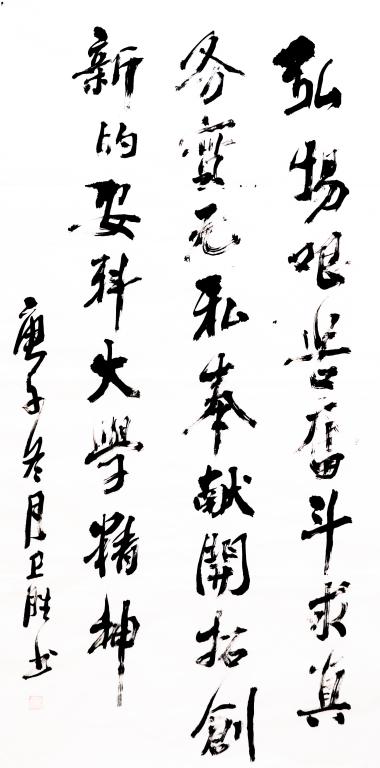 弘揚艰苦奮斗求真
务實无私奉献開拓創
新的安科大學精神
庚子冬月卫胜书